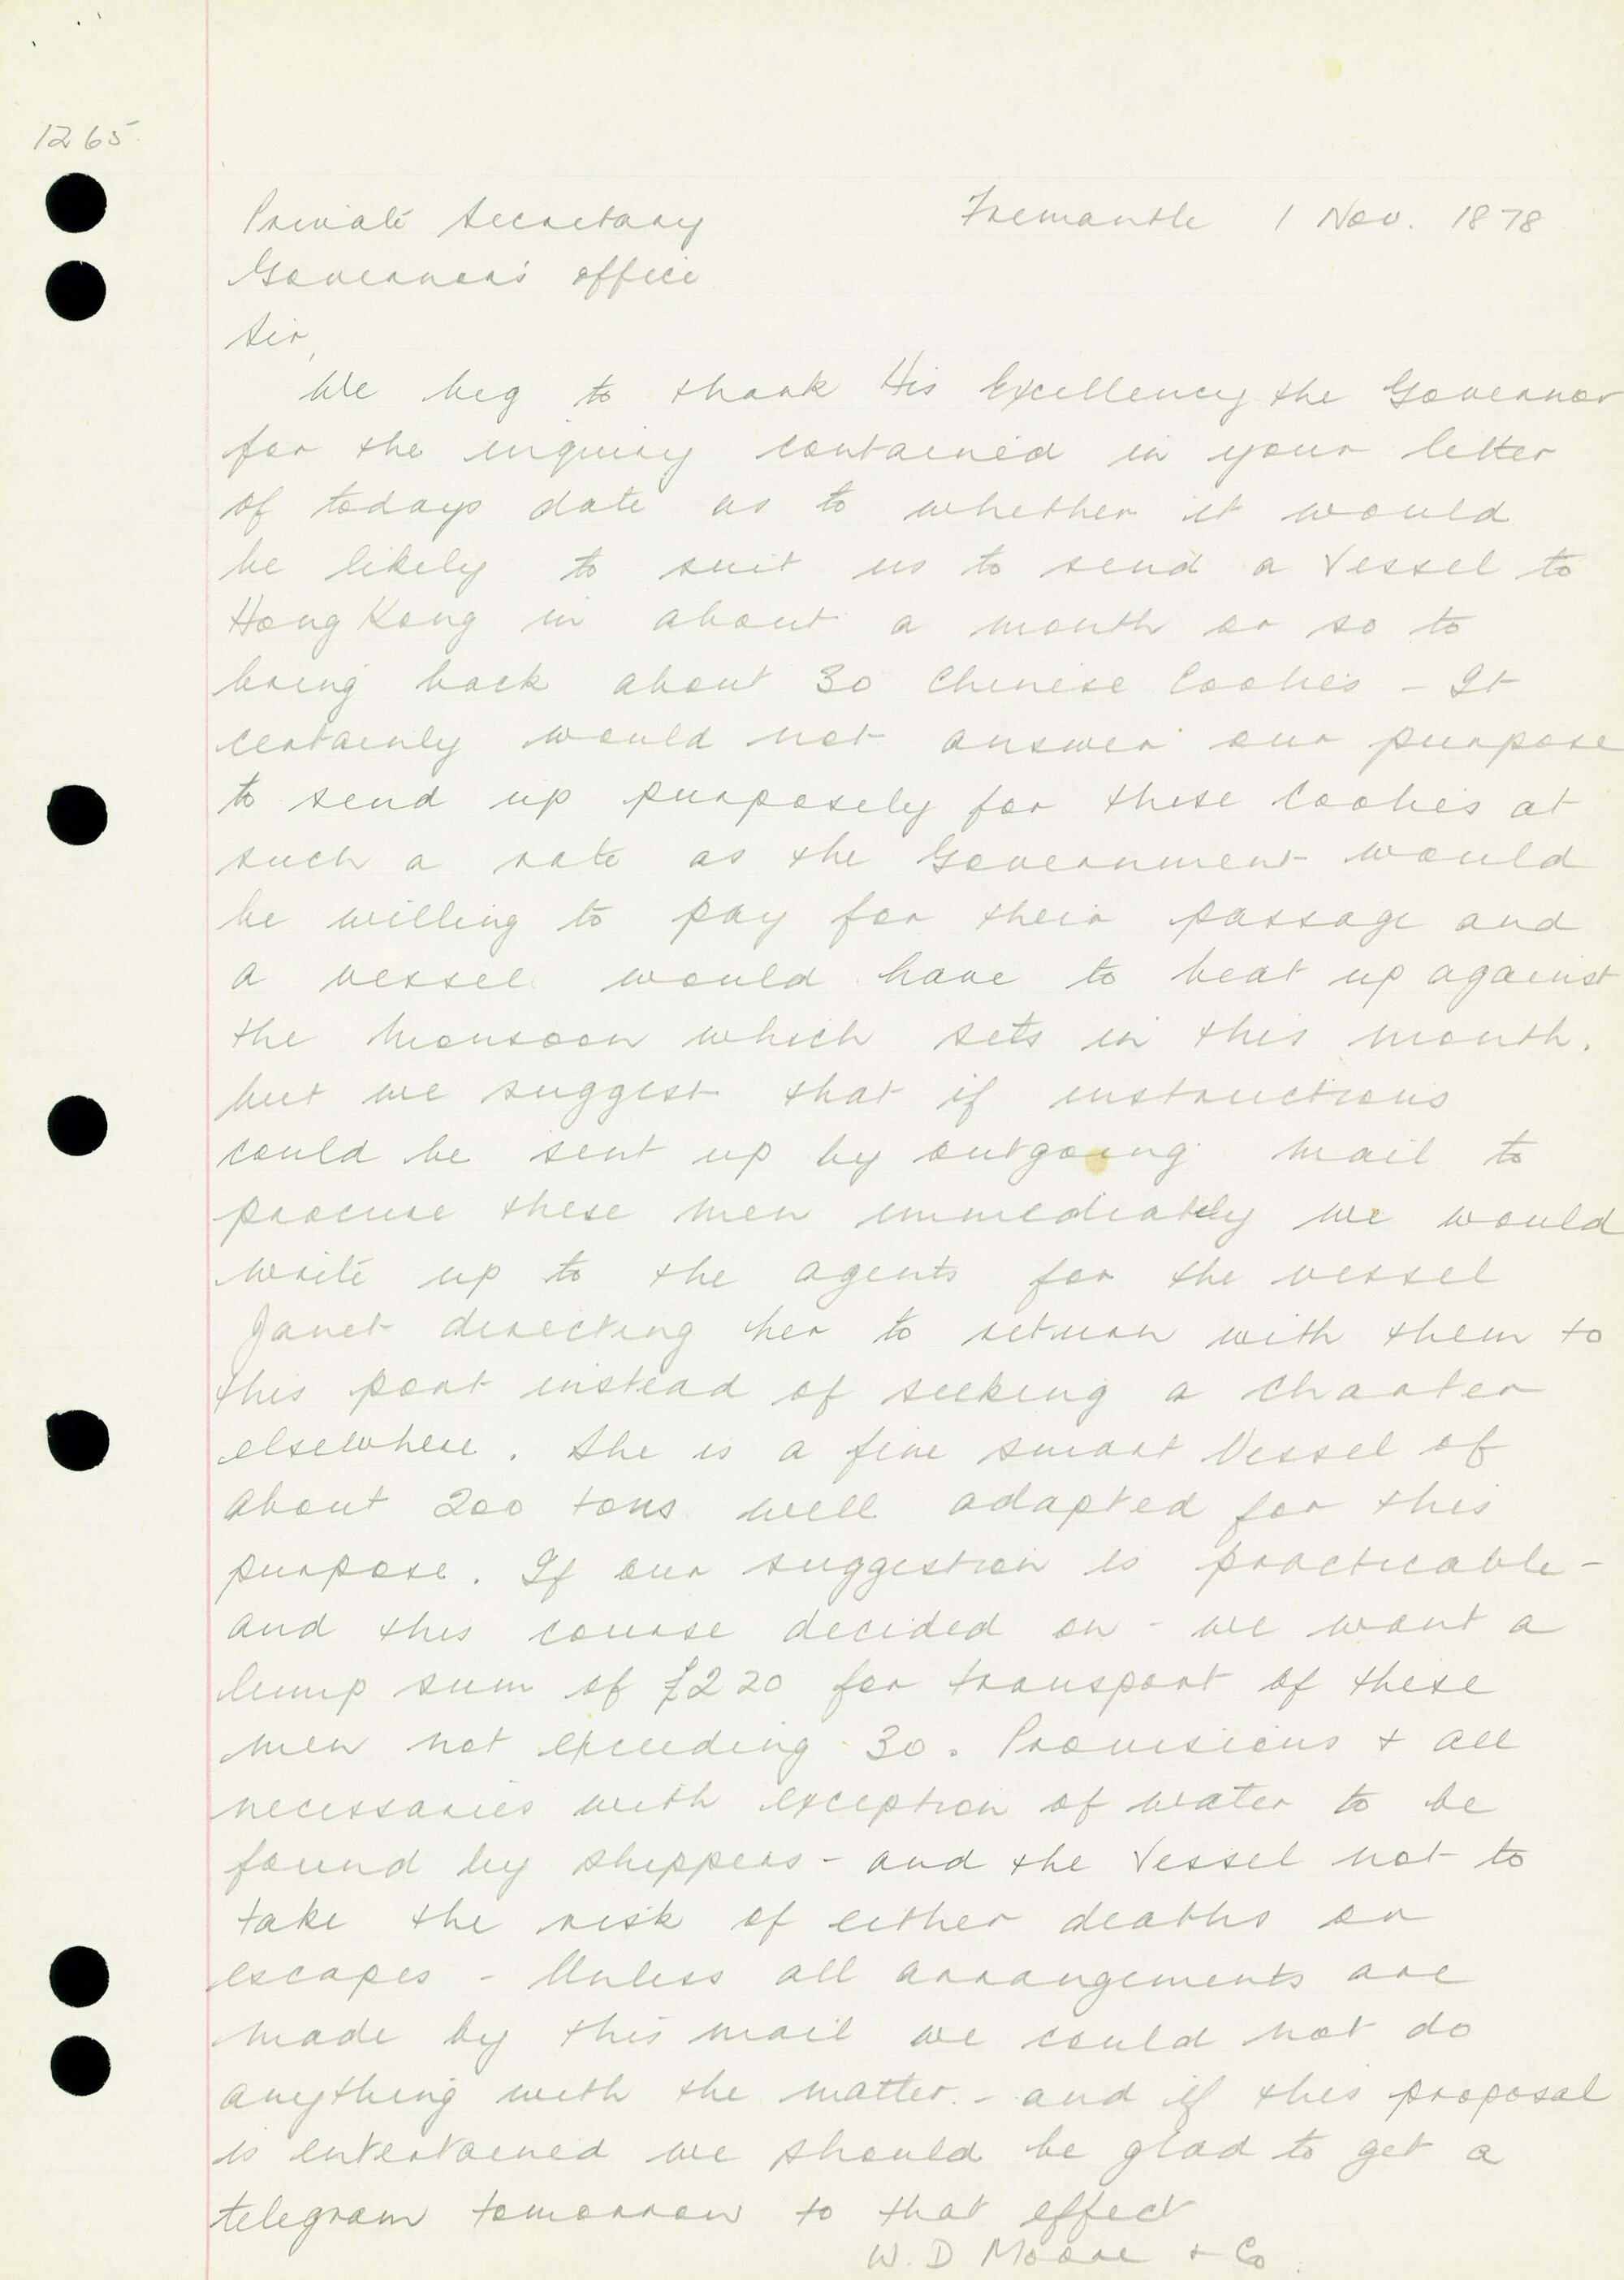 1265
Private Secretary Fremantle 1 Nov. 1878
Governor's office
Sir,
We beg to thank His Excellency the Governor
for the inquiry contained in your letter
of todays date as to whether it would
be likely to suit us to send a Vessel to
Hong Kong in about a month or so to
bring back about 30 Chinese Coolies - It
certainly would not answer our purpose
to send up purposely for these Coolies at
such a rate as the Government would
be willing to pay for their passage and
a vessel would have to beat up against
the Monsoon which sets in this month.
but we suggest that if instructions
could be sent up by outgoing mail to
procure these men immediately we would
write up to the agents for the vessel
Janet directing her to return with them to
this port instead of seeking a charter
elsewhere. She is a fine smart Vessel of
about 200 tons well adapted for this
purpose. If our suggestion is practicable -
and this course decided on - we want a
lump sum of £220 for transport of these
men not exceeding 30. Provisions + all
necessaries with exception of water to be
found by shippers - and the Vessel not to
take the risk of either deaths or
escapes - Unless all arrangements are
made by this mail we could not do
anything with the matter. - and if this proposal
is entertained we should be glad to get a
telegram tomorrow to that effect
W. D Moore + Co